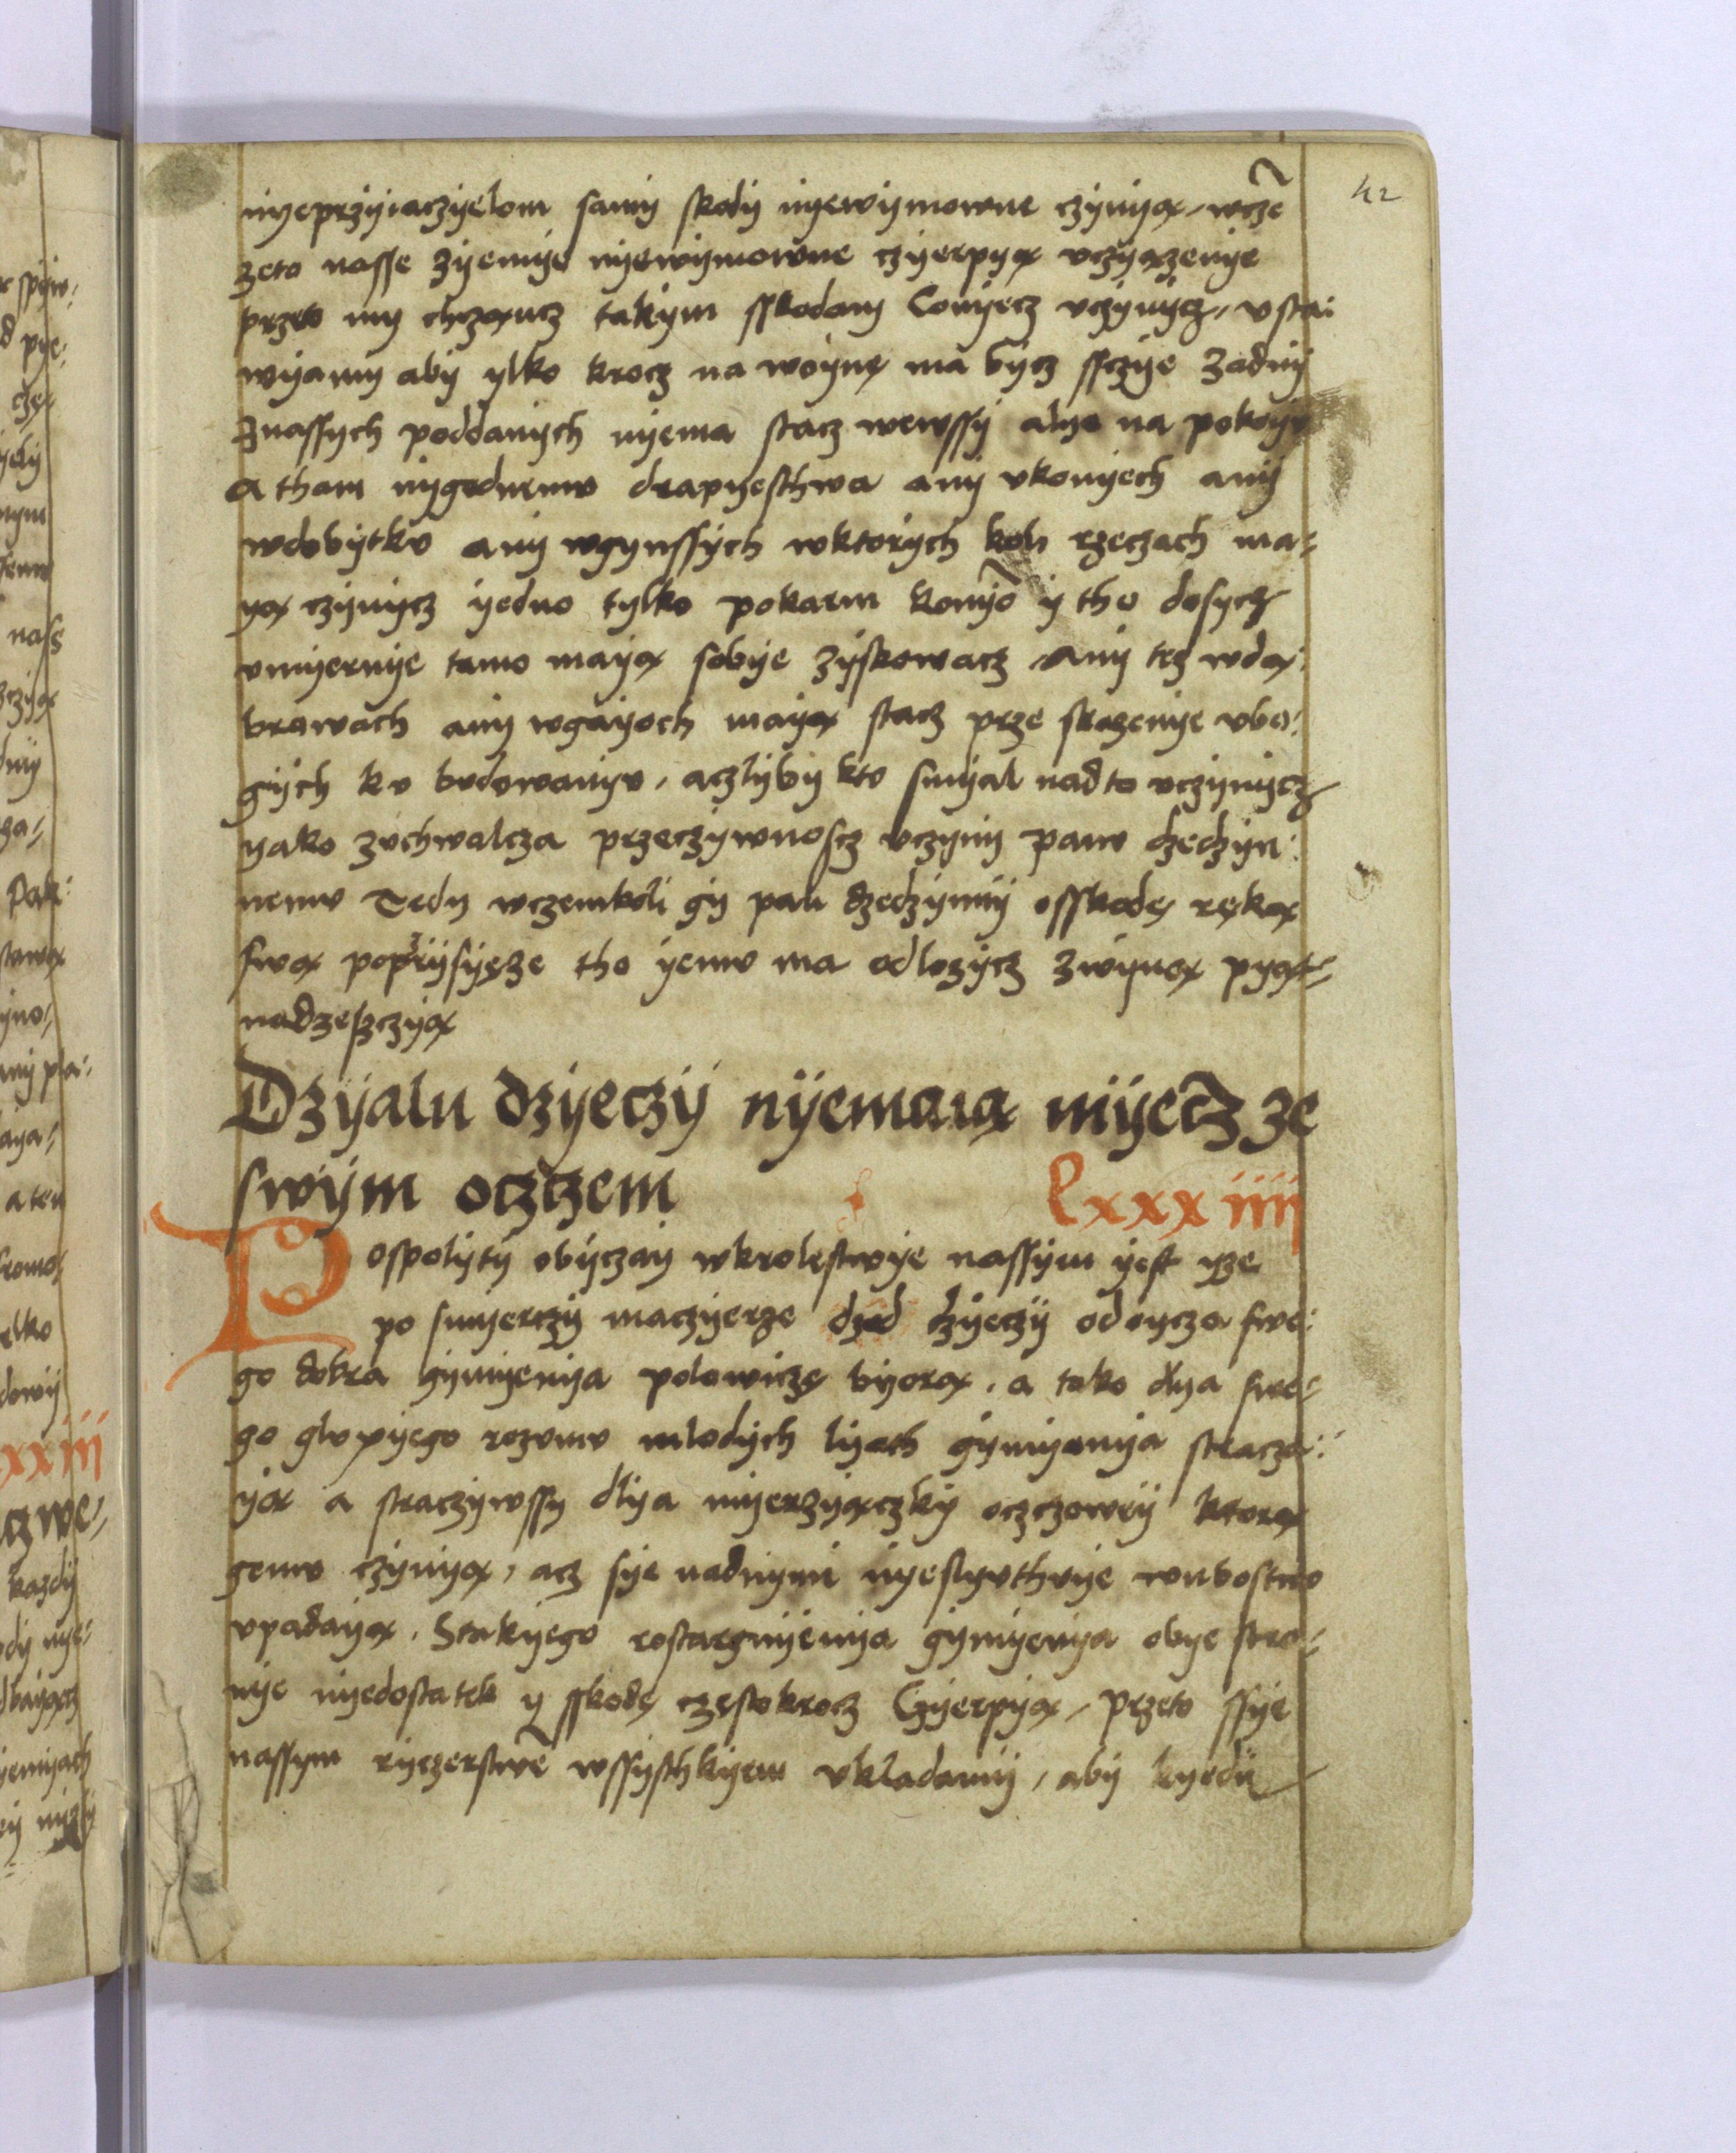 42
nyeprzyiaczyelom samy skody nyewymowne czynyą, wcze̅
zeto nasse zyemye nyewymowne czyerpyą vczyązenye
przeto my chcząncz takym sskodam Conyecz vczynycz, vsta:
wyamy aby ylko krocz na woynę ma bycz sczye zadny
znassych poddanych nyema stacz wewssy alye na pokoyv
a tham nygednemv drapyesthwa any vkonyech any
wdobytkv any wgynssych wktorych koli rzeczach ma-
yą czynycz yedno tylko pokarm konyo̅ y tho dosycz
vmyernye tamo mayą sobye zyskowacz, any tez wdą:
browach any wgayoch mayą stacz prze skazenye vbo:
gych kv bvdowanyv, aczlyby kto smyal nadto vczynycz
yako zuchwalcza przeczywnoscz vczyny panv dzedzyn:
nemv Tedy wczemkoli gy pan dzedzynny osskodę ręką
swą poprzysyęze tho yemv ma odlozycz zwyną pyąt-
nadzesczyą
Dzyalu dzyeczy nyemaią myecz ze
swym oczczem
Lxxxiiij
Pospolyty obyczay wkrolestwye nassym yest yze
po smyerczy maczyerze dzed dzyeczy od oycza swe:
go dobra gymyenya polowiczę byorą, a tako dlya swe-
go glvpyego rozvmv mlodych lyath gymyenya stracza:
yą a straczywssy dlya myerzyączky oczczowey ktorą
gemv czynyą, acz sye nadnymi nyeslyvthvye wvbostwo
vpadayą. Stakyego rostargnyenya gymyenya obye stro-
nye nyedostatek y sskodę częstokrocz Czyerpyą, Przeto ssye
nassym ryczerstwe̅ wssysthkyem vkladamy, aby kyedy